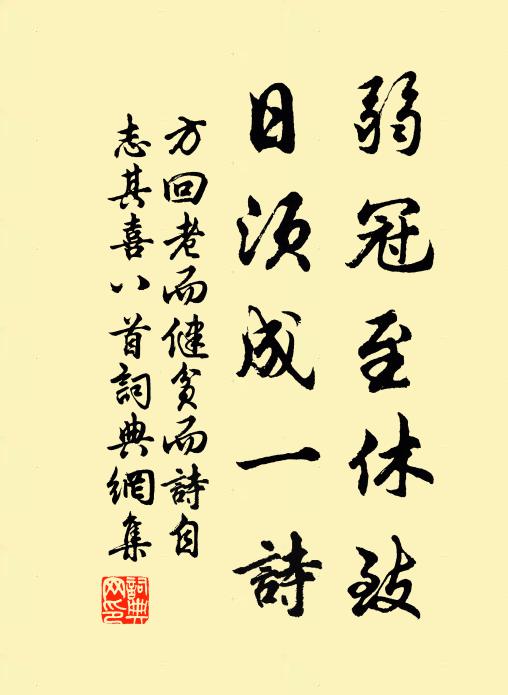 弱冠至休致
日须成一詩
方回老而健貧而詩自
志其喜八首詞典網集